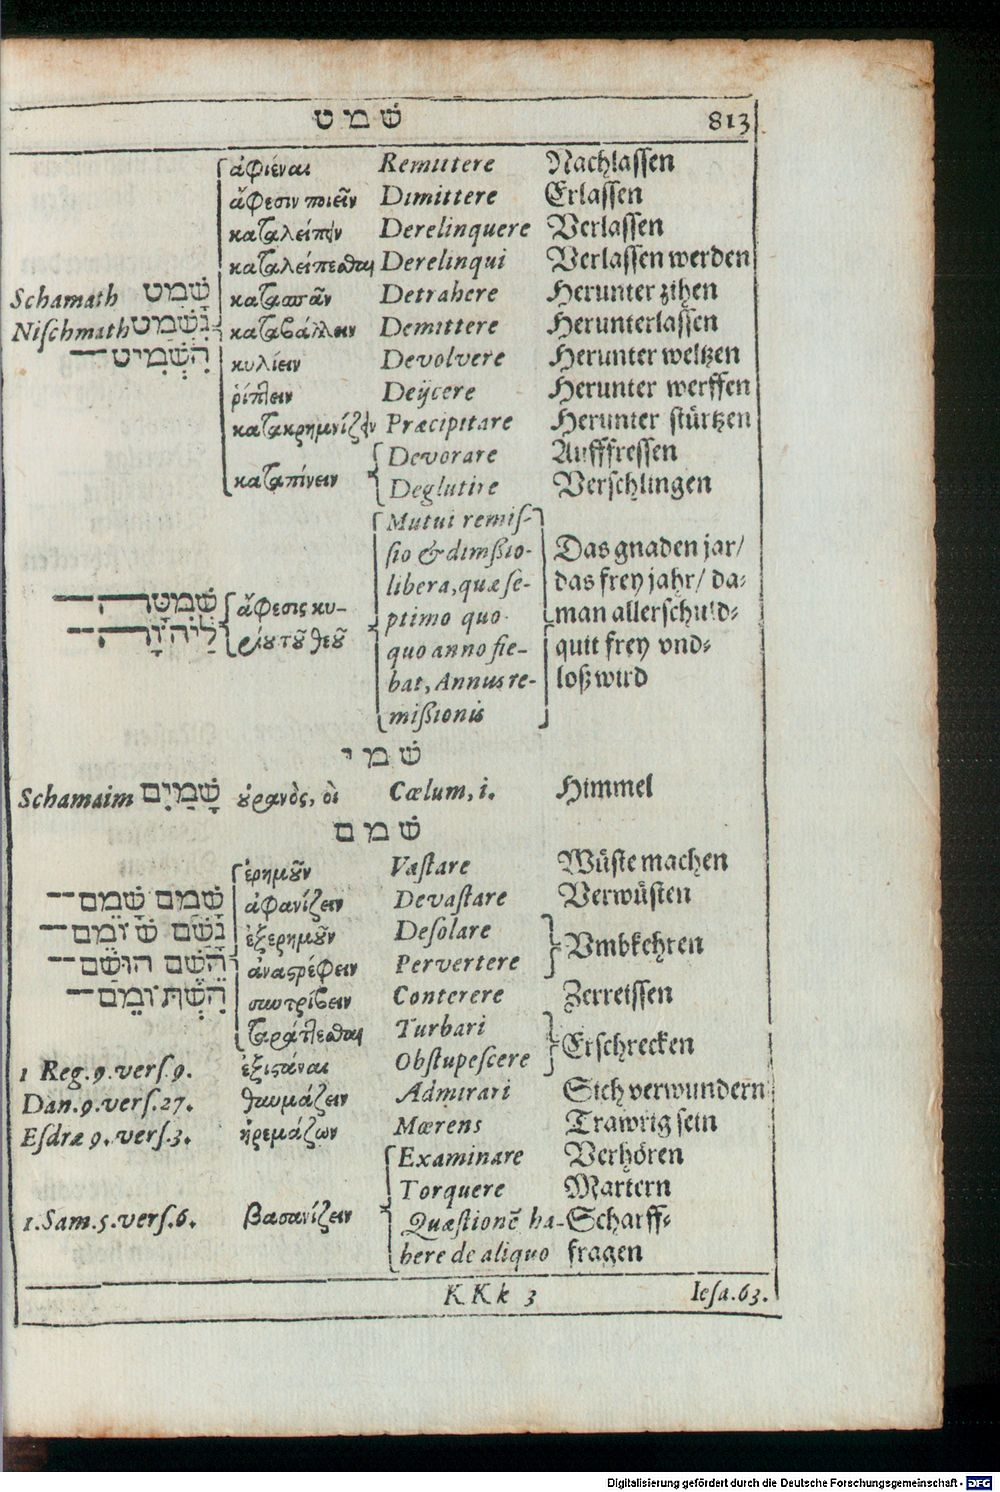 שׁ מ ט 813
ἀφιέναι Remittere Nachlassen
ἄφεσιν ποιεῖν Dimittere Erlassen
καταλείπειν Derelinquere Verlassen
καταλείπεσθαι Derelinqui Verlassen werden
Schamath שָׁמַט κατασπᾶν Detrahere Herunter zihen
Nischmath נִשְׁמַט καταβάλλειν Demittere Herunterlassen
הִשְׁמִיט — κυλίειν Devolvere Herunter weltzen
ῥίπτειν Deijcere Herunter werffen
κατακρημνίζειν Præcipitare Herunter stürtzen
Devorare Aufffressen
καταπίνειν Deglutire Verschlingen
Mutui remis-
sio & dimßio- Das gnaden jar/
libera, quæ se- das frey jahr/ da-
שְׁמִטָּה — ἄφεσις κυ- ptimo quo- man allerschuld-
לַיהֹוָה — ρίου τοῦ θεοῦ quo anno fie- quit frey vnd-
bat, Annus re- loß wird
mißionis
שׁ מ י
Schamaim שָׁמַיִם ουρανὸς, οὶ Cœlum, i. Himmel
שׁ מ ם
ἐρημοῦν Vastare Wüste machen
שָׁמַם שָׁמֵם — ἀφανίζειν Devastare Verwüsten
נָשַׁם שׁוֹמֵם — ἐξερημοῦν Desolare Vmbkehren
הֵשַׁם הוּשַׁם — ἀναστρέφειν Pervertere
הִשְׁתּוֹמֵם — συντρίβειν Conterere Zerreissen
ταράττεσθαι Turbari Erschrecken
1 Reg. 9. vers. 9. ἐξιστάναι Obstupescere
Dan. 9. vers. 27. θαυμάζειν Admirari Sich verwundern
Esdræ 9. vers. 3. ἠρεμάζων Mœrens Trawrig sein
Examinare Verhören
Torquere Martern
1. Sam. 5. vers. 6. βασανίζειν Quæstionē ha- Scharff-
bere de aliquo fragen
KKk 3 Iesa. 63.
Digitalisierung gefördert durch die Deutsche Forschungsgemeinschaft - DFG